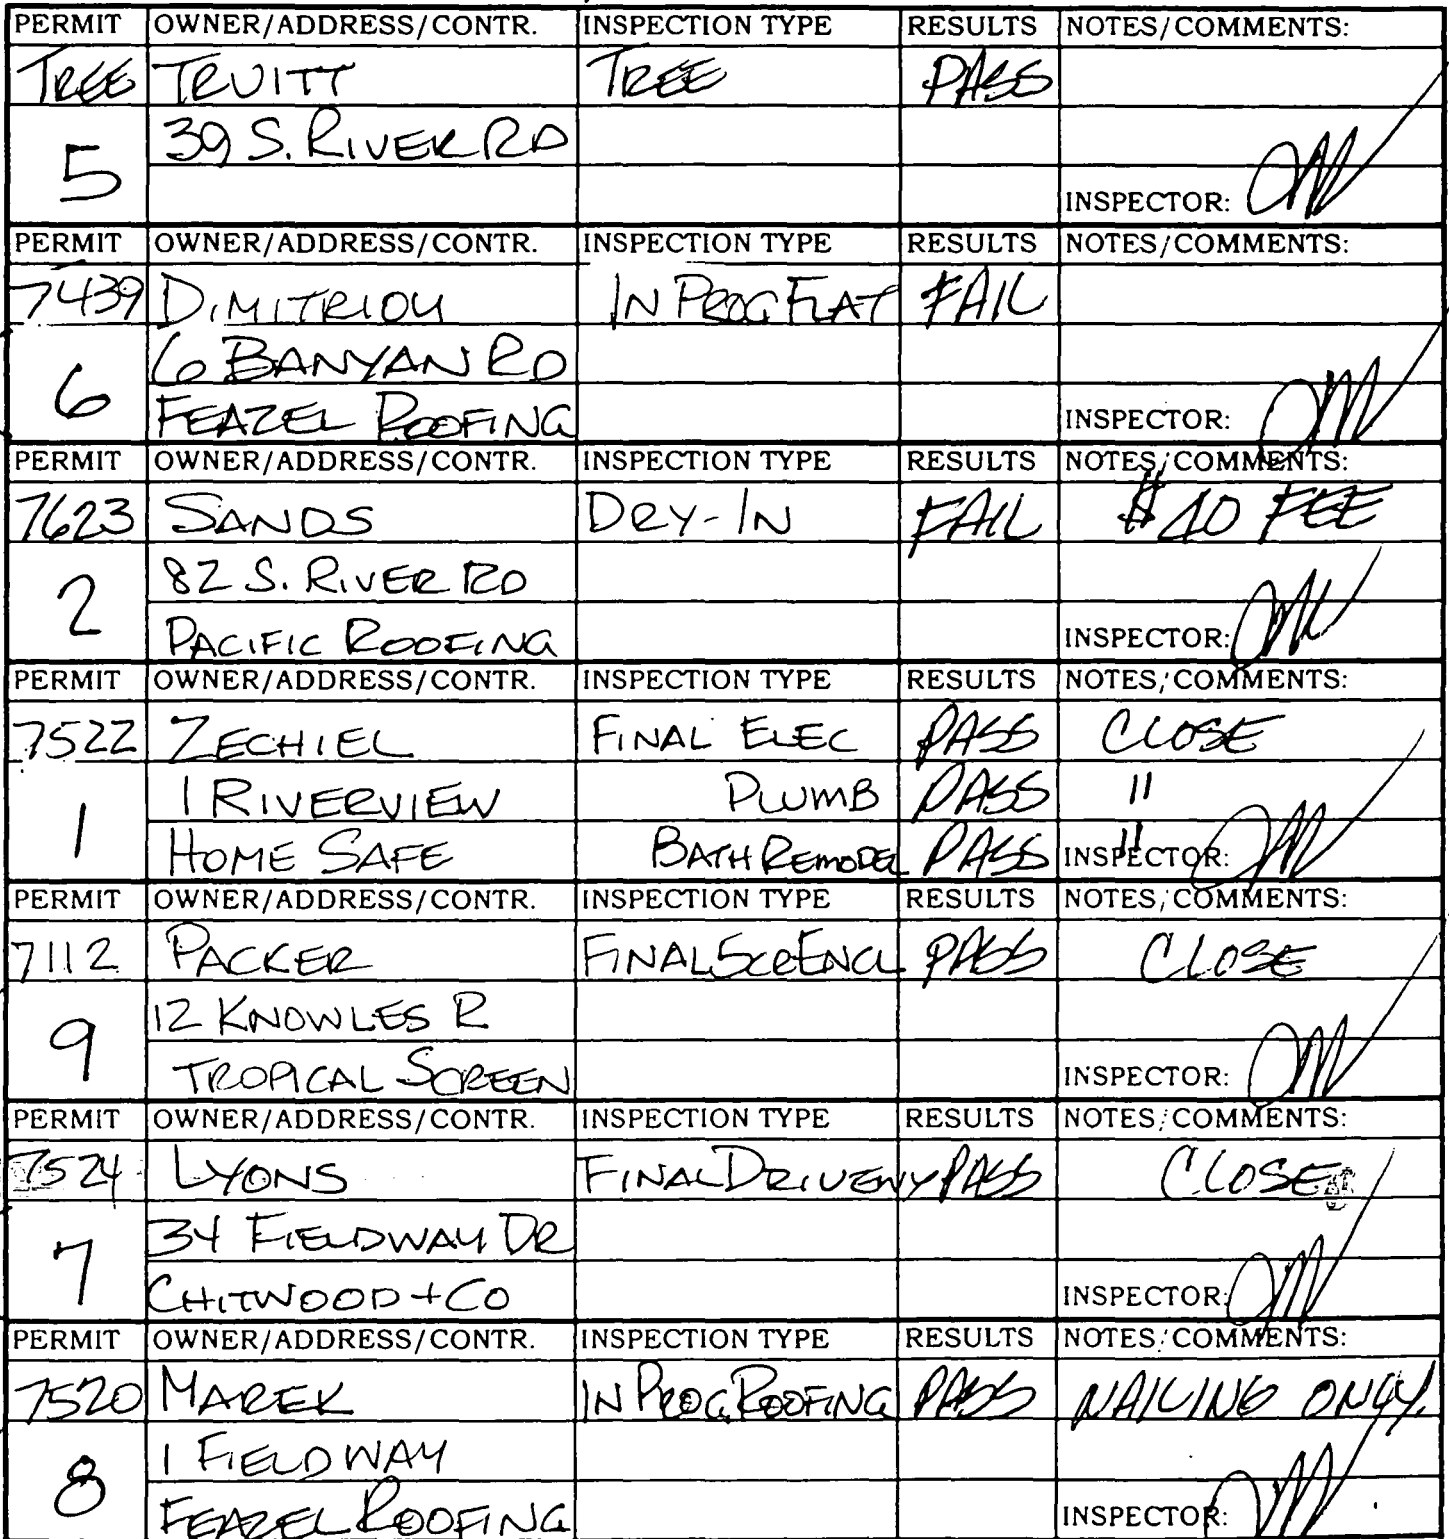 PERMIT OWNER/ADDRESS/CONTR. INSPECTION TYPE RESULTS NOTES/COMMENTS:
TREE TRUITT TREE PASS
5 39 S. RIVER RD
INSPECTOR:
PERMIT OWNER/ADDRESS/CONTR. INSPECTION TYPE RESULTS NOTES/COMMENTS:
7439 DIMITRIOU IN PROG FLAT FAIL
6 6 BANYAN RD
FEAZEL ROOFING INSPECTOR:
PERMIT OWNER/ADDRESS/CONTR. INSPECTION TYPE RESULTS NOTES/COMMENTS:
7623 SANDS DRY-IN FAIL $40 FEE
2 82 S. RIVER RD
PACIFIC ROOFING INSPECTOR:
PERMIT OWNER/ADDRESS/CONTR. INSPECTION TYPE RESULTS NOTES/COMMENTS:
7522 ZECHIEL FINAL ELEC PASS CLOSE
1 1 RIVERVIEW PLUMB PASS "
HOME SAFE BATH REMODEL PASS " INSPECTOR:
PERMIT OWNER/ADDRESS/CONTR. INSPECTION TYPE RESULTS NOTES/COMMENTS:
7112 PACKER FINAL SCR ENCL PASS CLOSE
9 12 KNOWLES R
TROPICAL SCREEN INSPECTOR:
PERMIT OWNER/ADDRESS/CONTR. INSPECTION TYPE RESULTS NOTES/COMMENTS:
7524 LYONS FINAL DRIVEWY PASS CLOSE
7 34 FIELDWAY DR
CHITWOOD + CO INSPECTOR:
PERMIT OWNER/ADDRESS/CONTR. INSPECTION TYPE RESULTS NOTES/COMMENTS:
7520 MAREK IN PROG. ROOFING PASS NAILING ONLY.
8 1 FIELDWAY
FEAZEL ROOFING INSPECTOR: